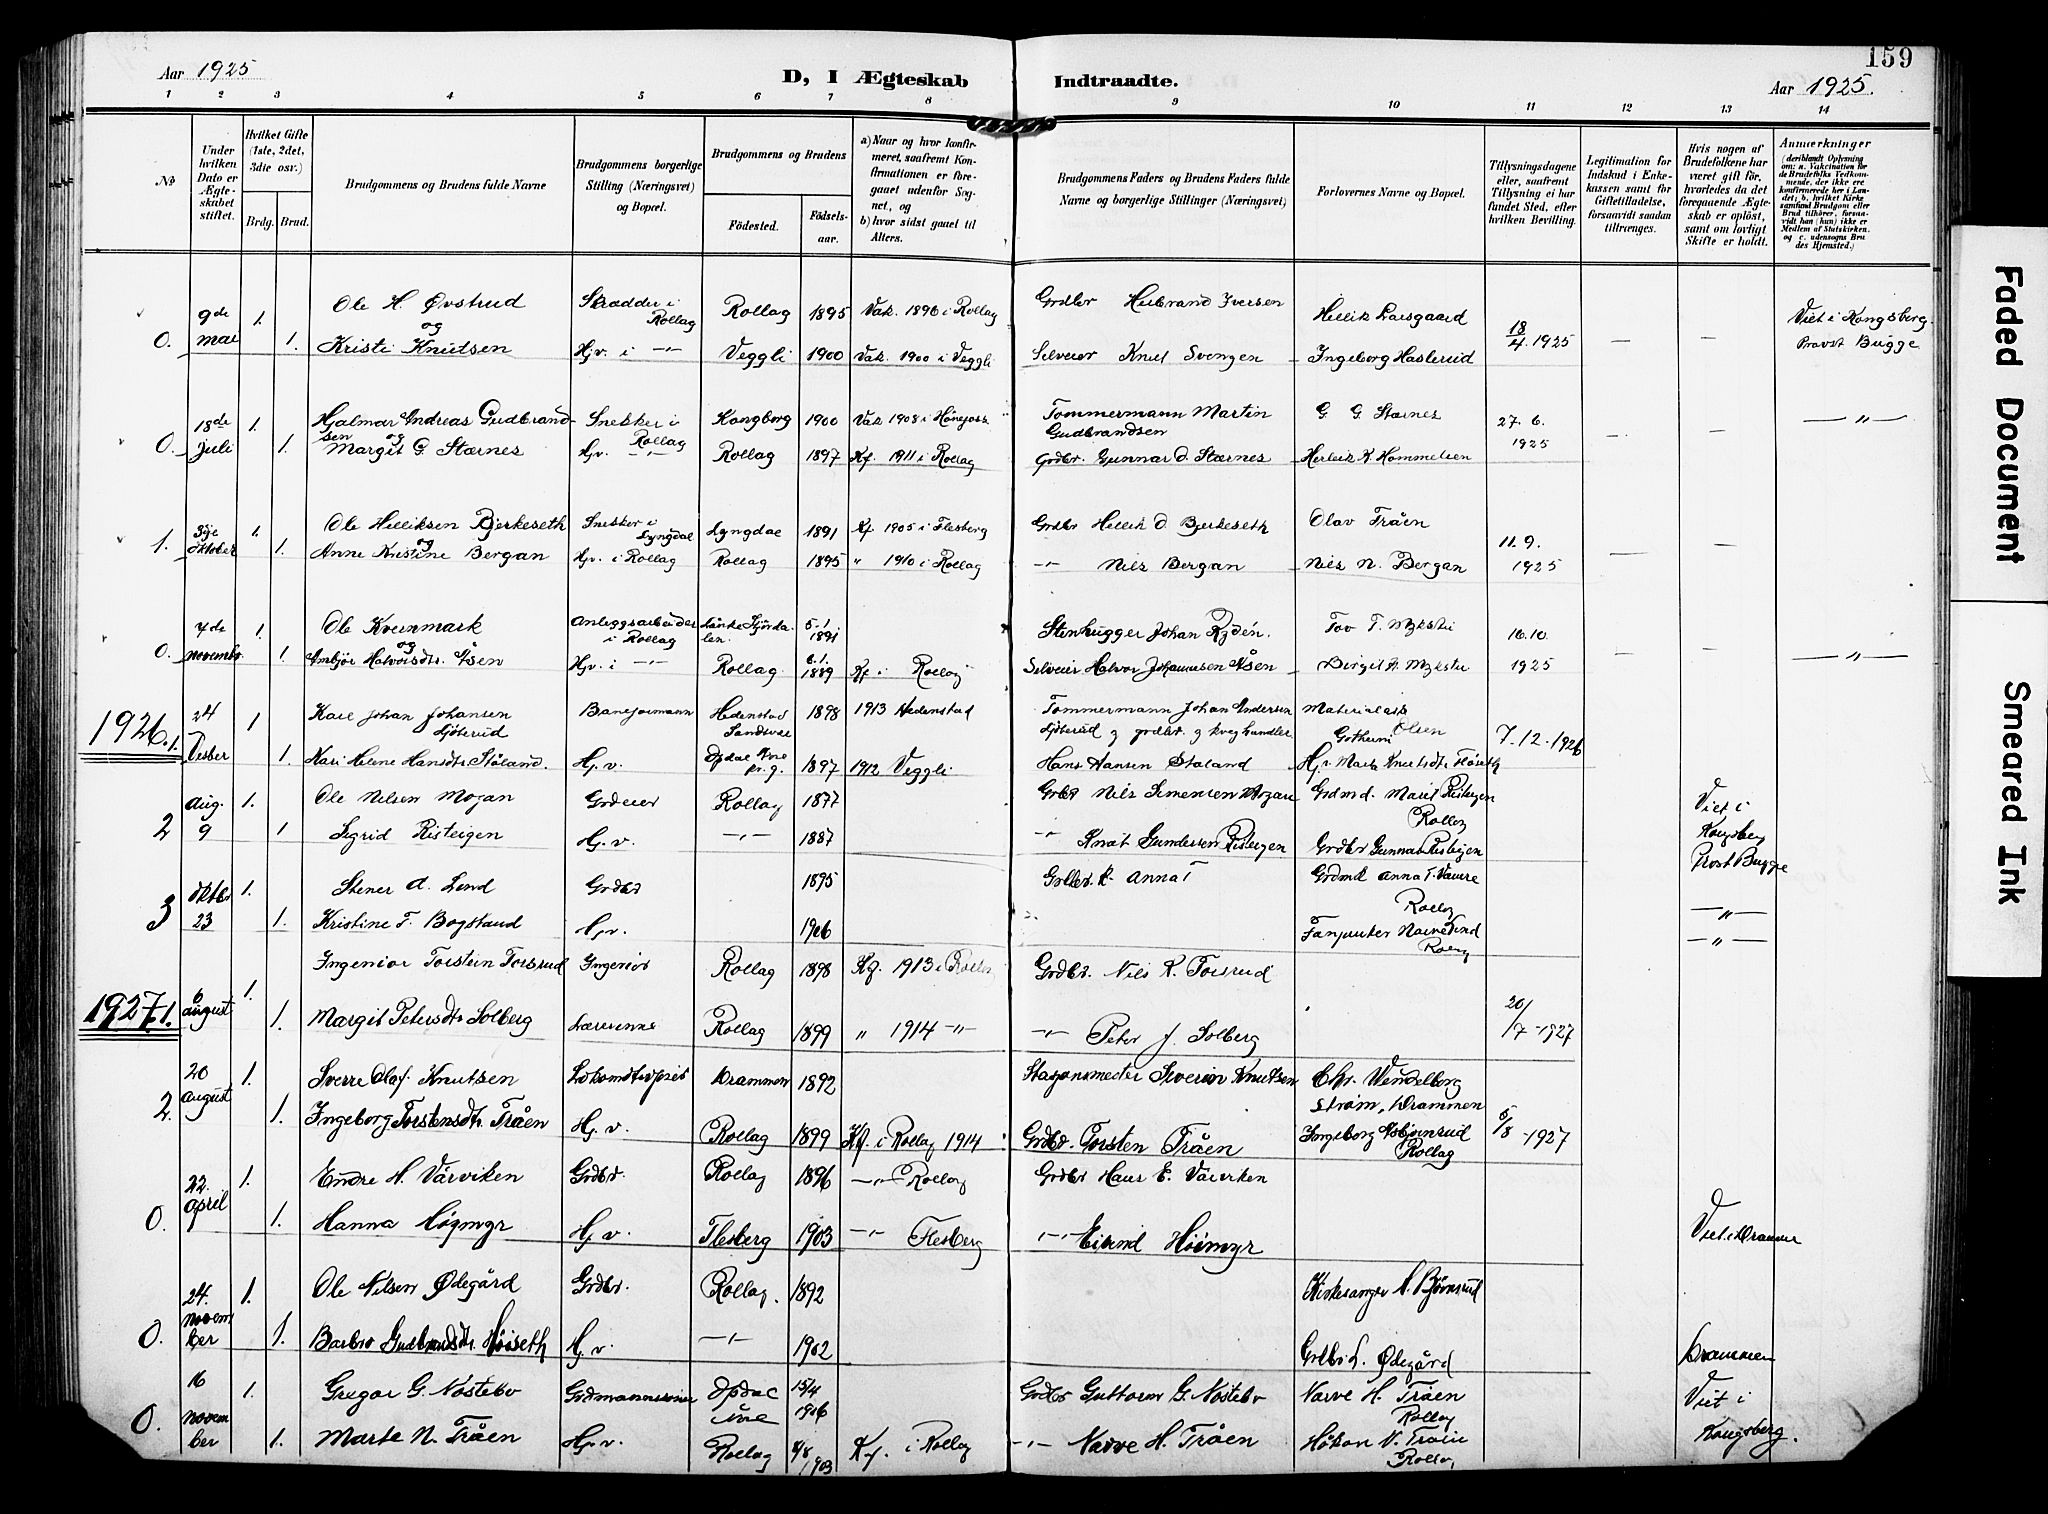 159
Aar 1925
D, I Ægteskab Indtraadte.
Aar 1925.
1 2 3 4 5 6 7 8 9 10 11 12 13 14
No
Under hvilken Dato er Ægteskabet stiftet.
Hvilket Gifte (1ste, 2det, 3die osv.)
Brdg. Brud.
Brudgommens og Brudens fulde Navne
Brudgommens borgerlige Stilling (Næringsvei) og Bopæl.
Brudgommens og Brudens
Födested. Födselsaar.
a) Naar og hvor konfirmeret, saafremt Konfirmationen er foregaaet udenfor Sognet, og
b) hvor sidst gaaet til Alters.
Brudgommens Faders og Brudens Faders fulde Navne og borgerlige Stillinger (Næringsvei)
Forlovernes Navne og Bopæl.
Tillysningsdagene eller, saafremt Tillysning ei har fundet Sted, efter hvilken Bevilling.
Legitimation for Indskud i Enkekassen samt for Giftetilladelse, forsaavidt saadan tiltrænges.
Hvis nogen af Brudefolkene har været gift för, hvorledes da det foregaaende Ægteskab er oplöst, samt om lovligt Skifte er holdt.
Anmærkninger
(deriblandt Oplysning om: a. Vakcination for de Brudefolks Vedkommende, der ikke ere konfirmerede her i Landet; b. hvilket Kirkesamfund Brudgom eller Brud tilhörer, forsaavidt han (hun) ikke er Medlem af Statskirken. og c. udensogns Brudes Hjemsted.)
9de 1. Ole H. Øvstrud Skrædder i Rollag Rollag 1895 Vak. 1896 i Rollag Grdbr Helbrand Iversen Hellik Laasgaard 18/4. 1925 Viet i Kongsberg.
og
0. mai 1. Kristi Knutsen Hjv. i -"- Veggli 1900 Vak. 1900 i Veggli Selveier Knut Svengen Ingeborg Haslerud — — Provst Bugge
18de 1. Hjalmar Andreas Gudbrandsen Snekker i Rollag Kongberg 1900 Vak 1908 i Hönefoss Tommermann Martin Gudbrandsen G. G. Stærnes 27. 6. 1925 — — -"-
og
0. Juli 1. Margit G. Stærnes Hjv. -"- Rollag 1897 Kf. 1911 i Rollag Grdbr. Gunnar O. Stærnes Herleik K. Hammelsen
3dje 1. Ole Helliksen Bjerkeseth Snekker i Lyngdal Lyngdal 1891 Kf 1905 i Flesberg Grdbr Hellik O Bjerkeseth Olav Tråen 11. 9.
og
1. Oktober 1. Anne Kristine Bergan Hjv. i Rollag Rollag 1895 " 1910 i Rollag -"- Nils Bergan Nils N. Bergan 1925 — —
1. Ole Kvernmark Anleggsarbeider i Rollag 5.1 1891 Stenhugger Johan Rydén. Tov T. Mykstu 16.10.
og
0. novembr. 1. Ambjör Halvorsdtr. Åsen Hjv. i -"- Rollag 1889 Kf i Rollag Selveier Halvor Johannesen Åsen Birgit A. Mykstu 1925 — — -"-
1926. 1. 24 1 Karl Johan Johansen Sjöterud Baneformann Hedenstad Sandsvær 1898 1913 Hedenstad Tommermann Johan Andersen Materialask
Gothum Olsen 7.12.1926
1 Kari Helene Hansdtr. Stöland. Hj.v. Opdal 1897 1912 Veggli Hans Hansen Staland Hjv Marta Knutsdtr
2 Aug. 9 1. Ole Nilsen Mogan Grdeier Rollag 1877 Grbr Nils Simensen Mogan Grdmd. Marit Risteigen Rollag Viet i
1 Sigrid Risteigen Hj.v. -"- 1887 -"- Knut Gundersen Risteigen Grdbr Gunnar Risteigen Kongsberg Prost Bugge
3 Oktbr 23 1. Stener A. Lend Grdbr 1895 Anna T Grdmd Anna T. Rollag -"-
1. Kristine T. Bogstrand Hjv. 1906 Fanjunker Narve Rollag -"-
1927. 1. 6 august 1. Ingeniör Torstein Torsrud Ingeniör Rollag 1898 Kf. 1913 i Rollag Grdbr. Nils K. Torsrud
1. Margit Petersdtr Solberg Lærerinne Rollag 1899 " 1914 -"- -"- Peter J. Solberg 20/7-1927
2. 20 august 1. Sverre Olaf Knutsen Drammen 1892 Stasjonsmester Severin Knutsen Chr. Wendelborg Ström, Drammen
1. Ingeborg Torstensdtr. Tråen Hj.v. Rollag 1899 Kf. i Rollag 1914 Grdbr. Torsten Tråen Ingeborg Asbjönrud Rollag 5/8-1927
0. 22. April 1. Endre H. Värviken Grdbr. Rollag 1896 -"- Rollag Grdbr Hans E. Värviken
1. Hanna Högmyr Hj.v. Flesberg 1903 -"- Flesberg -"- Eivind Höimyr Viet i Drammen
0. 24. november 1. Ole Nilsen Ødegård Grdbr. Rollag. 1892 Kirkesanger A. Björnsrud
1. Barbro Gudbrandsdtr. Höiseth Hj.v. -"- 1902 Grdbr L. Ødegård Drammen
0. 16 november 1. Gregar G. Nöstebö Grdmannssönn Opdal 15/4 1906 Grdbr Guttorm G. Nöstebö Narve H. Tråen Rollag Viet i
1. Marte N. Tråen Hj.v. Rollag 4/8 1903 Kf. i Rollag -"- Narve H. Tråen Håkon N. Tråen Rollag Kongsberg.
Faded Document
Smeared Ink